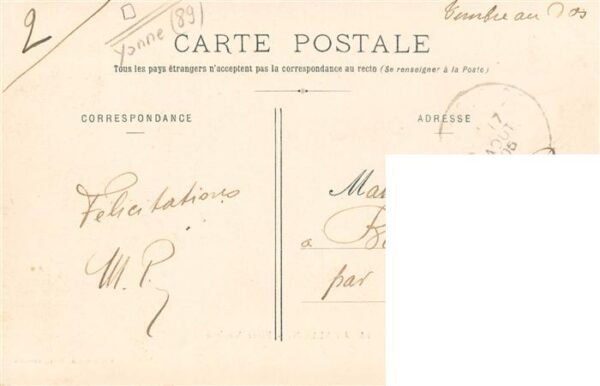 2
Yonne (89)
Timbre au dos
CARTE POSTALE
Tous les pays étrangers n'acceptent pas la correspondance au recto (Se renseigner à la Poste)
CORRESPONDANCE
ADRESSE
17
AOUT
Félicitations
M. P.
à
par